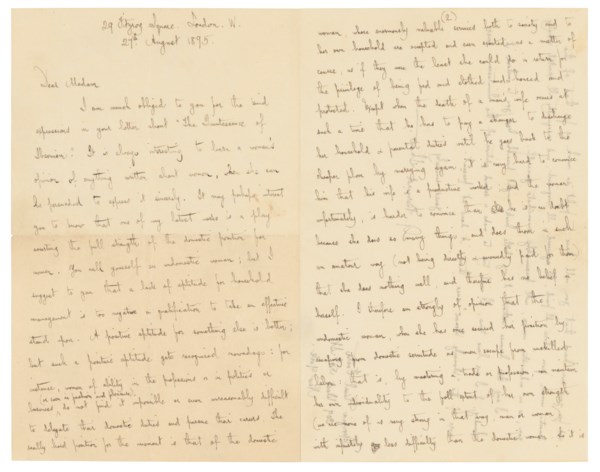 29 Fitzroy Square. London. W.
27th August 1895.
Dear Madam
I am much obliged to you for the kind
expressions in your letter about "The Quintessence of
Ibsenism." It is always interesting to have a woman's
opinion of anything written about women, when she can
be persuaded to express it sincerely. It may perhaps interest
you to know that one of my latest works is a play
exhibiting the full strength of the domestic position for
women. You call yourself an undomestic woman; but I
suggest to you that a lack of aptitude for household
management is too negative a qualification to take an effective
stand upon. A positive aptitude for something else is better;
but such a positive aptitude gets recognized nowadays; for
instance, women of ability in the professions or in politics or
business, do not find it impossible or even unreasonably difficult
(or even in fashion and pleasure)
to delegate their domestic duties and pursue their careers. The
really hard position for the moment is that of the domestic
(2)
woman, whose enormously valuable services both to society and to
her own household are accepted and even exacted as a matter of
course, as if they were the least she could do in return for
the privilege of being fed and clothed and housed and
protected. Except when the death of a man's wife comes at
such a time that he has to pay a stranger to discharge
her household & parental duties until he goes back to the
cheaper plan by marrying again, it is very hard to convince
him that his wife is a productive worker; and the woman
unfortunately, is harder to convince than he is no doubt
because she does so many things, and does them in such
an amateur way (not being directly & normally paid for them)
that she does nothing well, and therefore has no belief in
herself. I therefore am strongly of opinion that the
undomestic woman, when she has once secured her position by
escaping from domestic servitude as men escape from unskilled
labor: that is, by mastering a trade or profession, can maintain
her own individuality to the full extent of her own strength
(and no more of us very strong in that way, man or woman)
with infinitely less difficulty than the domestic woman. So it is